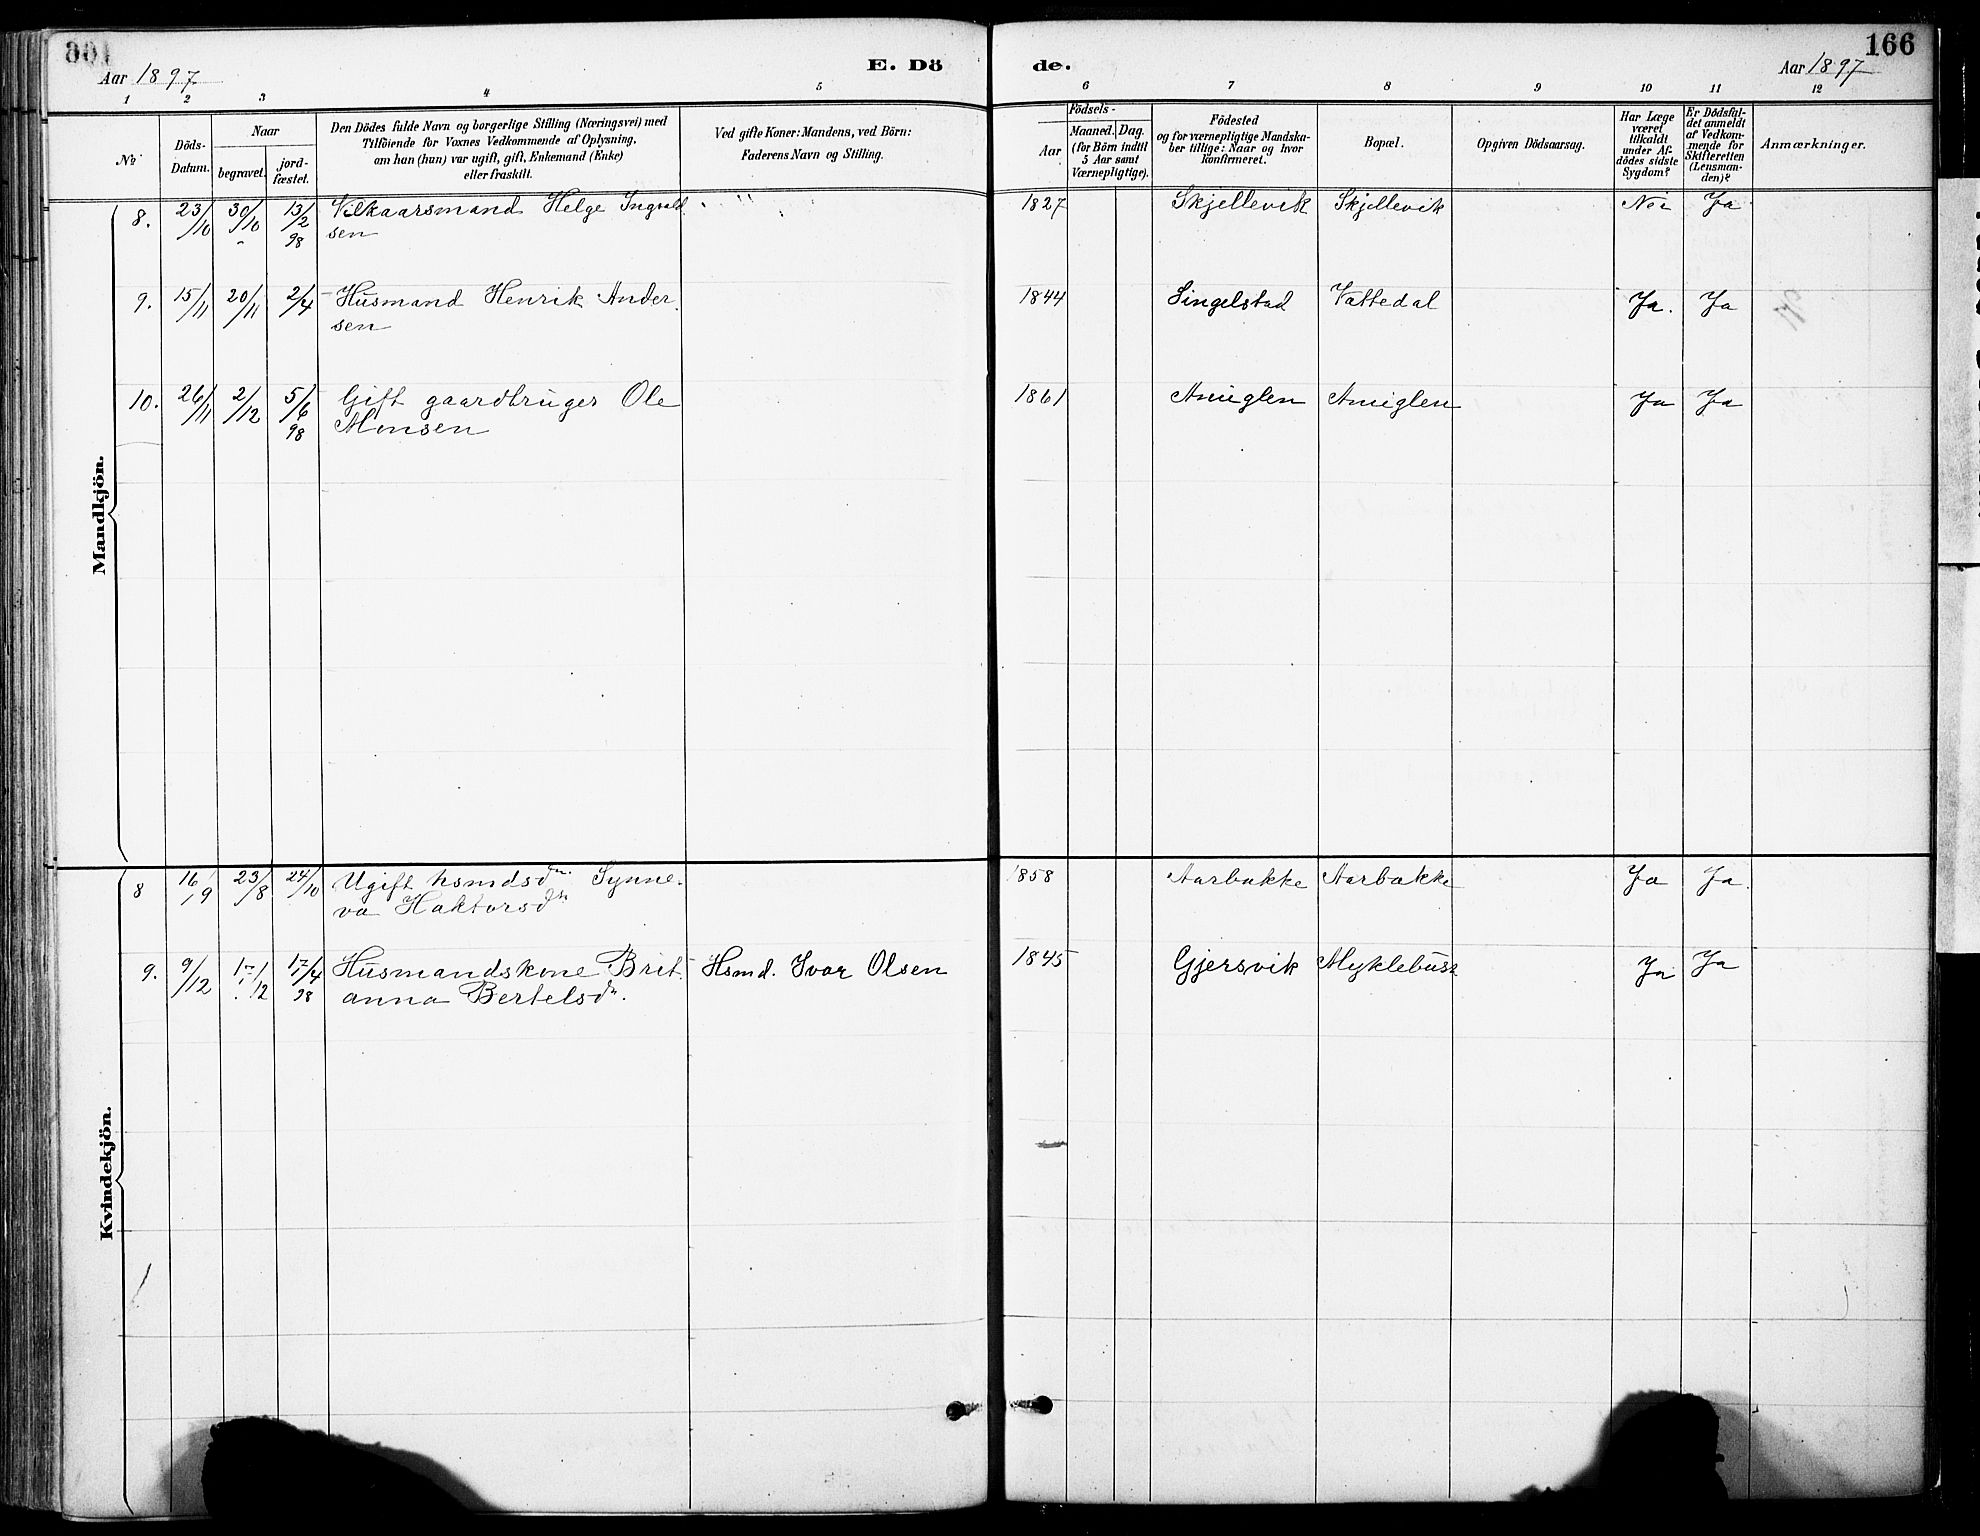 166
Aar 1897
E. Dö
de.
Aar 1897
1 2 3 4 5 6 7 8 9 10 11 12
No
Döds-Datum.
Naar
begravet.
jord-fæstet.
Den Dödes fulde Navn og borgerlige Stilling (Næringsvei) med
Tilföiende for Voxnes Vedkommende af Oplysning,
om han (hun) var ugift, gift, Enkemand (Enke)
eller fraskilt.
Ved gifte Koner: Mandens, ved Börn:
Faderens Navn og Stilling.
Födsels-
Aar
Maaned. Dag.
(for Börn indtil
5 Aar samt
Værnepligtige).
Födested
og for værnepligtige Mandska-
ber tillige: Naar og hvor
konfirmeret.
Bopæl.
Opgiven Dödsaarsag.
Har Læge
været
tilkaldt
under Af-
dödes sidste
Sygdom?
Er Dödsfal-
det anmeldt
af Vedkom-
mende for
Skifteretten
(Lensman-
den)?
Anmærkninger.
Mandkjön.
8. 23/10 30/10 13/2 98 Vilkaarsmand Helge Ingvald 1827 Skjellevik Skjellevik Nei Ja
sen
9. 15/11 20/11 2/4 Husmand Henrik Ander 1844 Singelstad Vattedal Ja. Ja
sen
10. 26/11 2/12 5/6 98 Gift gaardbruger Ole 1861 Amuglen Amuglen Ja Ja
Monsen
Kvindekjön.
8 16/9 23/8 24/10 Ugift hsmdsdtr. Synne- 1858 Aarbakke Aarbakke Ja Ja.
va Haktorsdtr
9. 9/12 17/12 17/4 98 Husmandskone Brit- Hsmd. Ivar Olsen 1845 Gjersvik Myklebust Ja Ja
anna Bertelsdtr.